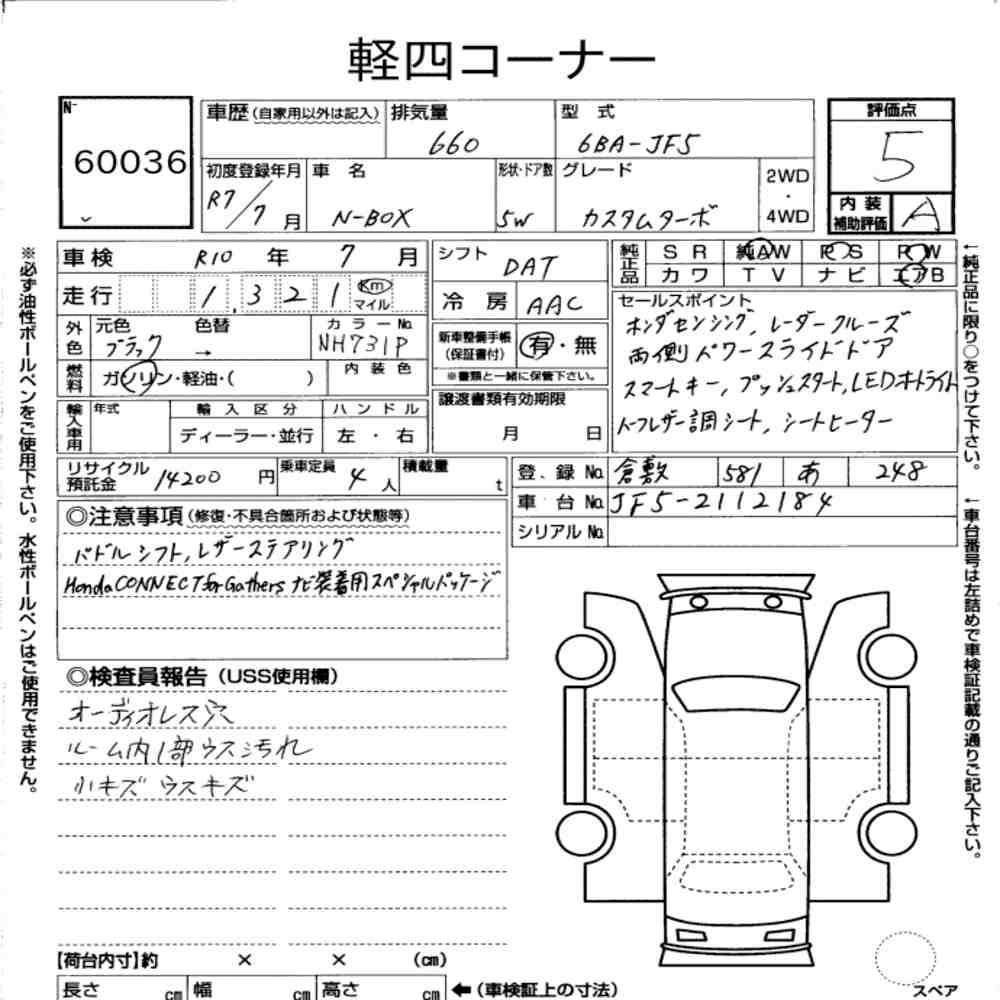 軽四コーナー
N-
60036
車歴(自家用以外は記入) 排気量 型式
660 6BA-JF5
初度登録年月 車名 形状・ドア数 グレード 2WD
・
4WD
R7/7月 N-BOX 5W カスタムターボ
評価点
5
内装
補助評価 A
車検 R10年 7月
走行 1,321 Km
マイル
外色 元色 色替 カラーNo.
ブラック → NH731P
燃料 ガソリン・軽油・( ) 内装色
輸入車用 年式 輸入区分 ハンドル
ディーラー・並行 左・右
シフト DAT
冷房 AAC
新車整備手帳
(保証書付) 有・無
※書類と一緒に保管下さい。
譲渡書類有効期限
月 日
純正品 SR 純AW PS PW
カワ TV ナビ エアB
セールスポイント
ホンダセンシング, レーダークルーズ
両側パワースライドドア
スマートキー, プッシュスタート, LEDオートライト
トーフレザー調シート, シートヒーター
リサイクル
預託金 14200円 乗車定員 4人 積載量 t
登録No. 倉敷 581 あ 248
車台No. JF5-2112184
シリアルNo.
◎注意事項(修復・不具合箇所および状態等)
パドルシフト, レザーステアリング
Honda CONNECT for Gathers ナビ装着用スペシャルパッケージ
◎検査員報告(USS使用欄)
オーディオレス穴
ルーム内1部ウス汚れ
小キズ ウスキズ
【荷台内寸】約 × × (cm)
長さ cm 幅 cm 高さ cm ←(車検証上の寸法)
スペア
※必ず油性ボールペンをご使用下さい。水性ボールペンはご使用できません。
←純正品に限り○をつけて下さい。
←車台番号は左詰めで車検証記載の通りご記入下さい。